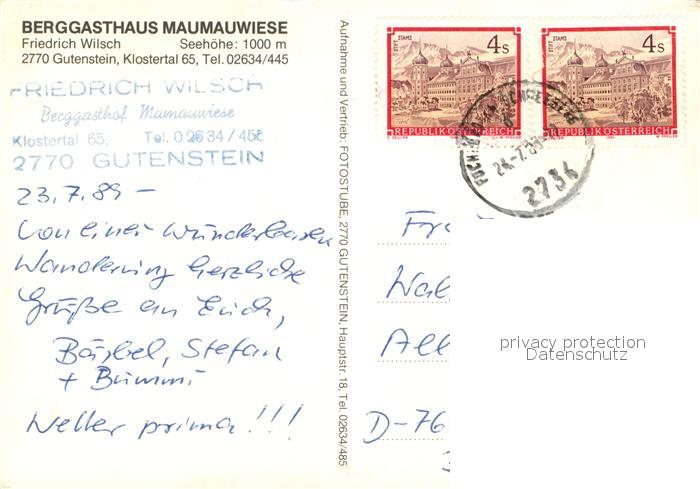 BERGGASTHAUS MAUMAUWIESE
Friedrich Wilsch Seehöhe: 1000 m
2770 Gutenstein, Klostertal 65, Tel. 02634/445
FRIEDRICH WILSCH
Berggasthof Mamauwiese
Klostertal 65, Tel. 02634/455
2770 GUTENSTEIN
23.7.89 –
Von einer wunderbaren
Wanderung herzliche
Grüße an Euch,
Bärbel, Stefan
+ Bummi
Wetter prima!!!
Aufnahme und Vertrieb: FOTOSTUBE, 2770 GUTENSTEIN, Hauptstr. 18, Tel. 02634/485
STIFT STAMS
4 S
REPUBLIK ÖSTERREICH
STIFT STAMS
4 S
REPUBLIK ÖSTERREICH
24.-7.89
2734
Fr
Wal
All
D-76
privacy protection
Datenschutz